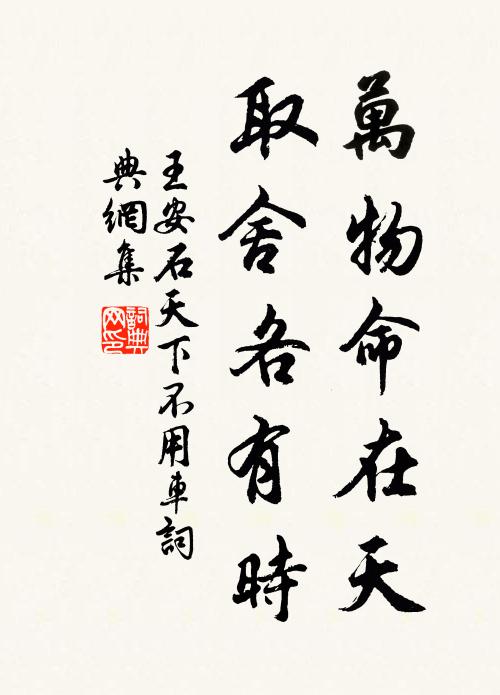 萬物命在天
取舍各有時
王安石天下不用車詞
典網集
詞典网印